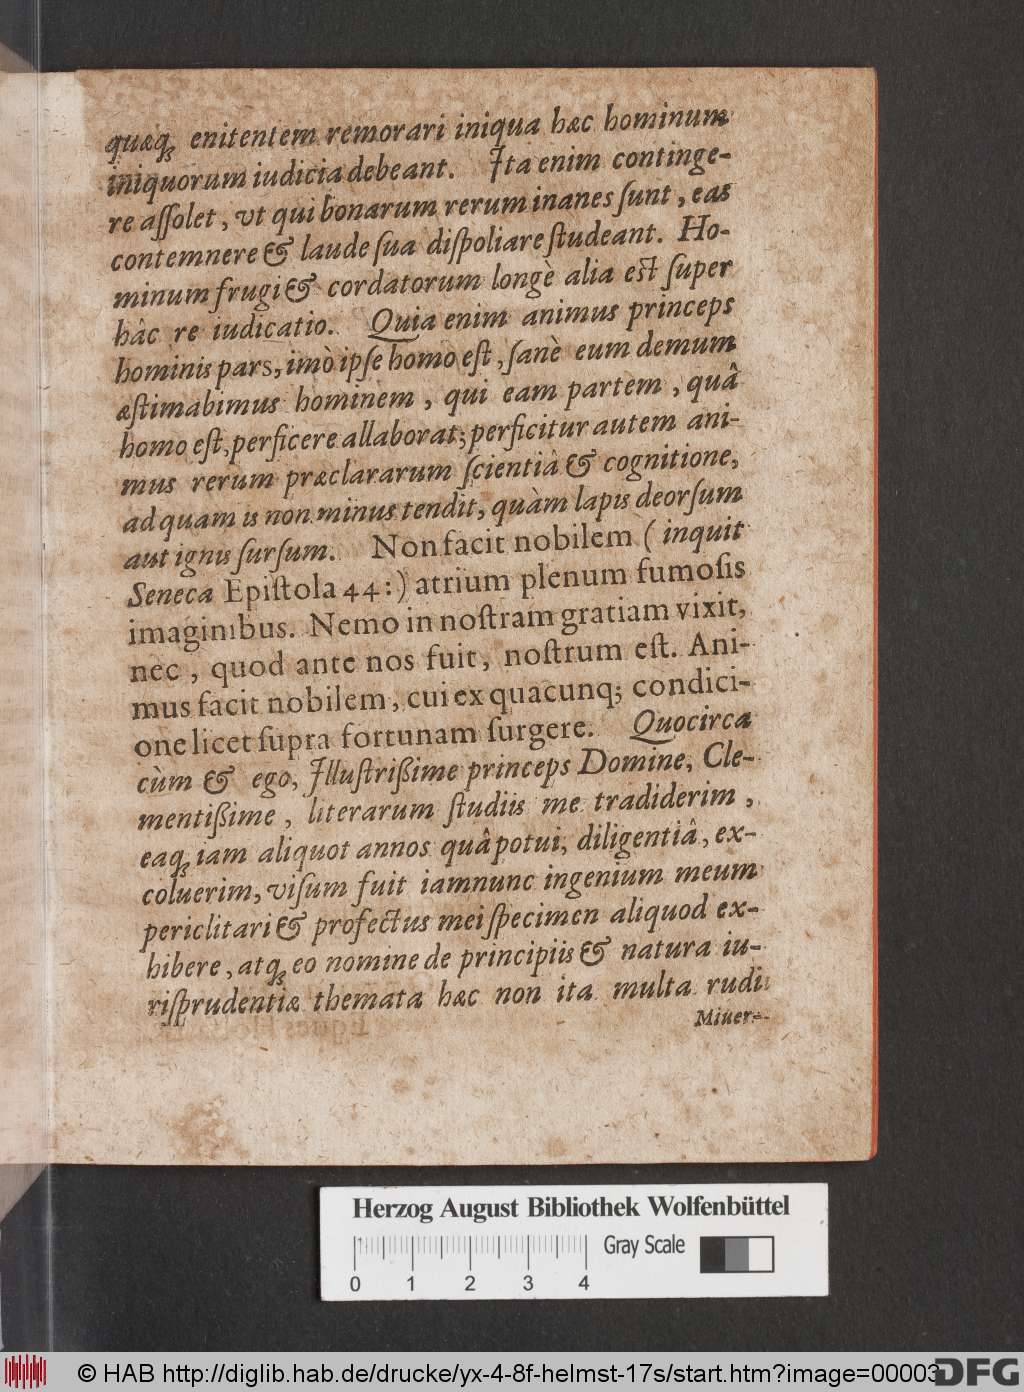 quæq; enitentem remorari iniqua hæc hominum
iniquorum iudicia debeant. Ita enim continge-
re aſſolet, vt qui bonarum rerum inanes ſunt, eas
contemnere & laude ſua diſpoliare ſtudeant. Ho-
minum frugi & cordatorum longè alia eſt ſuper
hâc re iudicatio. Quia enim animus princeps
hominis pars, imò ipſe homo eſt, ſanè eum demum
æſtimabimus hominem, qui eam partem, quâ
homo eſt, perficere allaborat; perficitur autem ani-
mus rerum præclararum ſcientiâ & cognitione,
ad quam is non minus tendit, quàm lapis deorſum
aut ignis ſurſum. Non facit nobilem (inquit
Seneca Epiſtola 44:) atrium plenum fumoſis
imaginibus. Nemo in noſtram gratiam vixit,
nec, quod ante nos fuit, noſtrum eſt. Ani-
mus facit nobilem, cui ex quacunq; condici-
one licet ſupra fortunam ſurgere. Quocirca
cùm & ego, Illuſtrißime princeps Domine, Cle-
mentißime, literarum ſtudiis me tradiderim,
eaq; iam aliquot annos quâ potui, diligentiâ, ex-
coluerim, viſum fuit iamnunc ingenium meum
periclitari & profectus mei ſpecimen aliquod ex-
hibere, atq; eo nomine de principiis & natura iu-
riſprudentiæ themata hæc non ita multa rudi
Miuer-
Herzog August Bibliothek Wolfenbüttel
0 1 2 3 4
Gray Scale
© HAB http://diglib.hab.de/drucke/yx-4-8f-helmst-17s/start.htm?image=00003
DFG